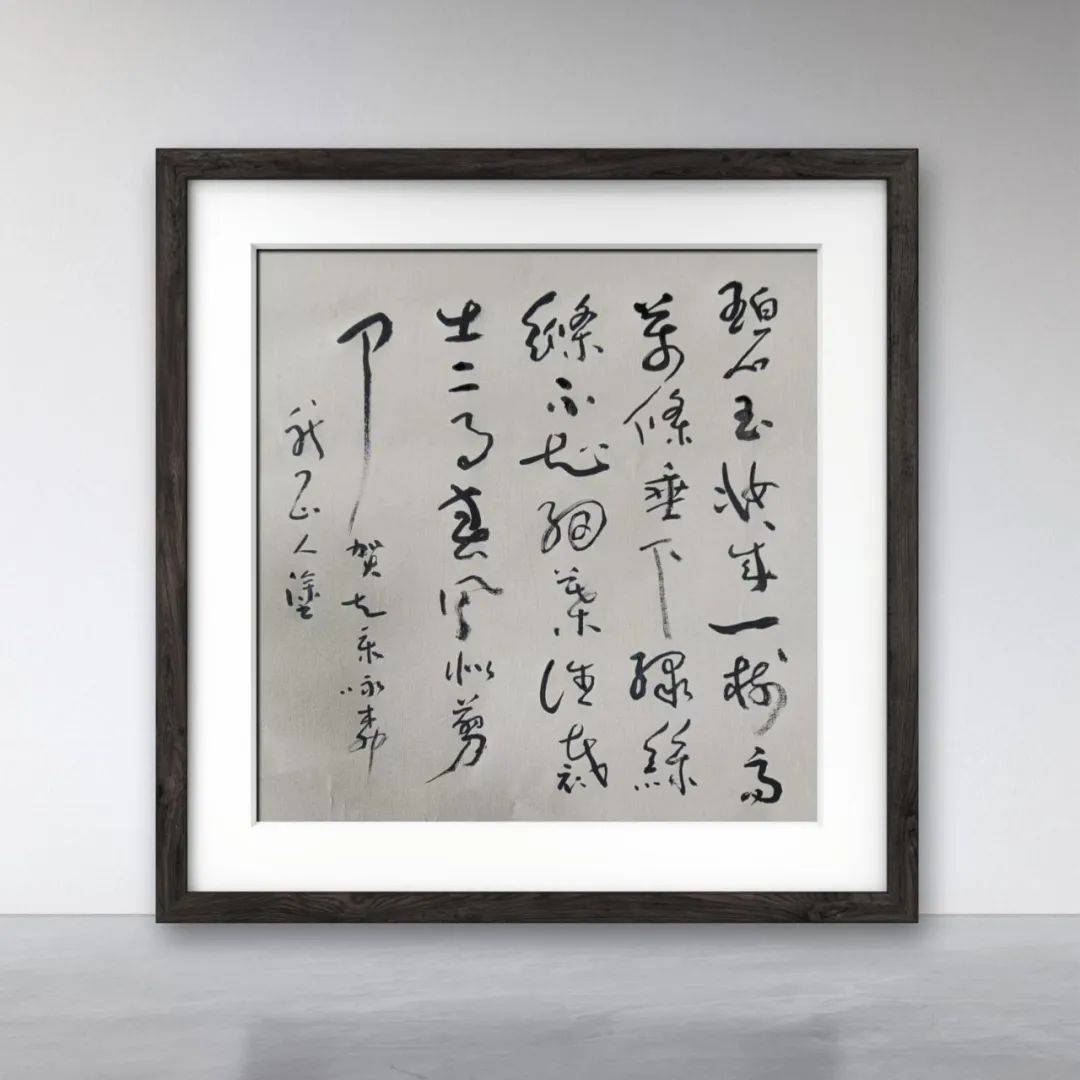 碧玉妝成一樹高
萬條垂下綠絲
縧不知細葉誰裁
出二月春風似剪
刀 賀知章咏柳
人塗